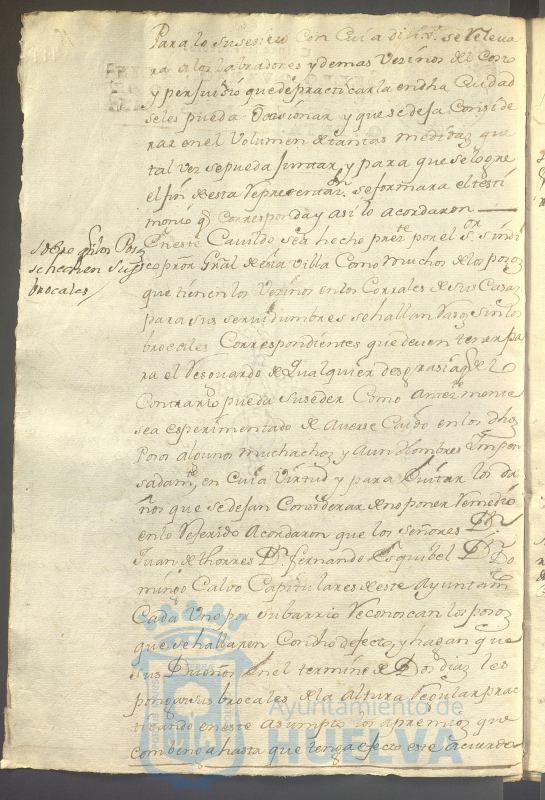 Para lo Susesivo Con Cuia dilixª. se Releva
ra a los labradores y demas Vezinos del Costo
y perjuisio que de practicarla en dha Ciudad
seles pueda Ocasionar, y que se deja Conside
rar en el Volumen de tantas medidas que
tal vez se pueda juntar, y para que se logre
el fin de esta Representazn. se formara el testi
monio q corresponda y asi lo acordaron
Sobre q los Pos
se hechen sus
brocales
En este Cavildo se a hecho preste por el Sor. Sindi
co pror Gral de esta Villa Como muchos de los pozos
que tienen los Vezinos en los Corrales de sus Casas
para sus servidumbres se hallan Rasos sin los
brocales Correspondientes que deven tener pa
ra el Resguardo de qualquier desgrasia q de lo
Contrario pueda suseder Como anteriormente
sea esperimentado de averse Caido en los dhos
Posos algunos muchachos y aun hombres Impen
sadamte, en Cuia Virtud y para Evitar los da
ños que se dejan Considerar de no poner Remedio
en lo Referido Acordaron que los señores Dn.
Juan de thorres Dn. fernando Esquibel Dn. Do
mingo Calvo Capitulares de este Ayuntamto
Cada Uno por su barrio Reconoscan los pozos
que se hallaren Con dho defecto, y hagan que
sus Dueños en el termino de Dos dias les
pongan sus brocales de la altura Regular prac
ticando en este asumpto los apremios que
combengan hasta que tenga efecto este acuerdo
Ayuntamiento de
HUELVA